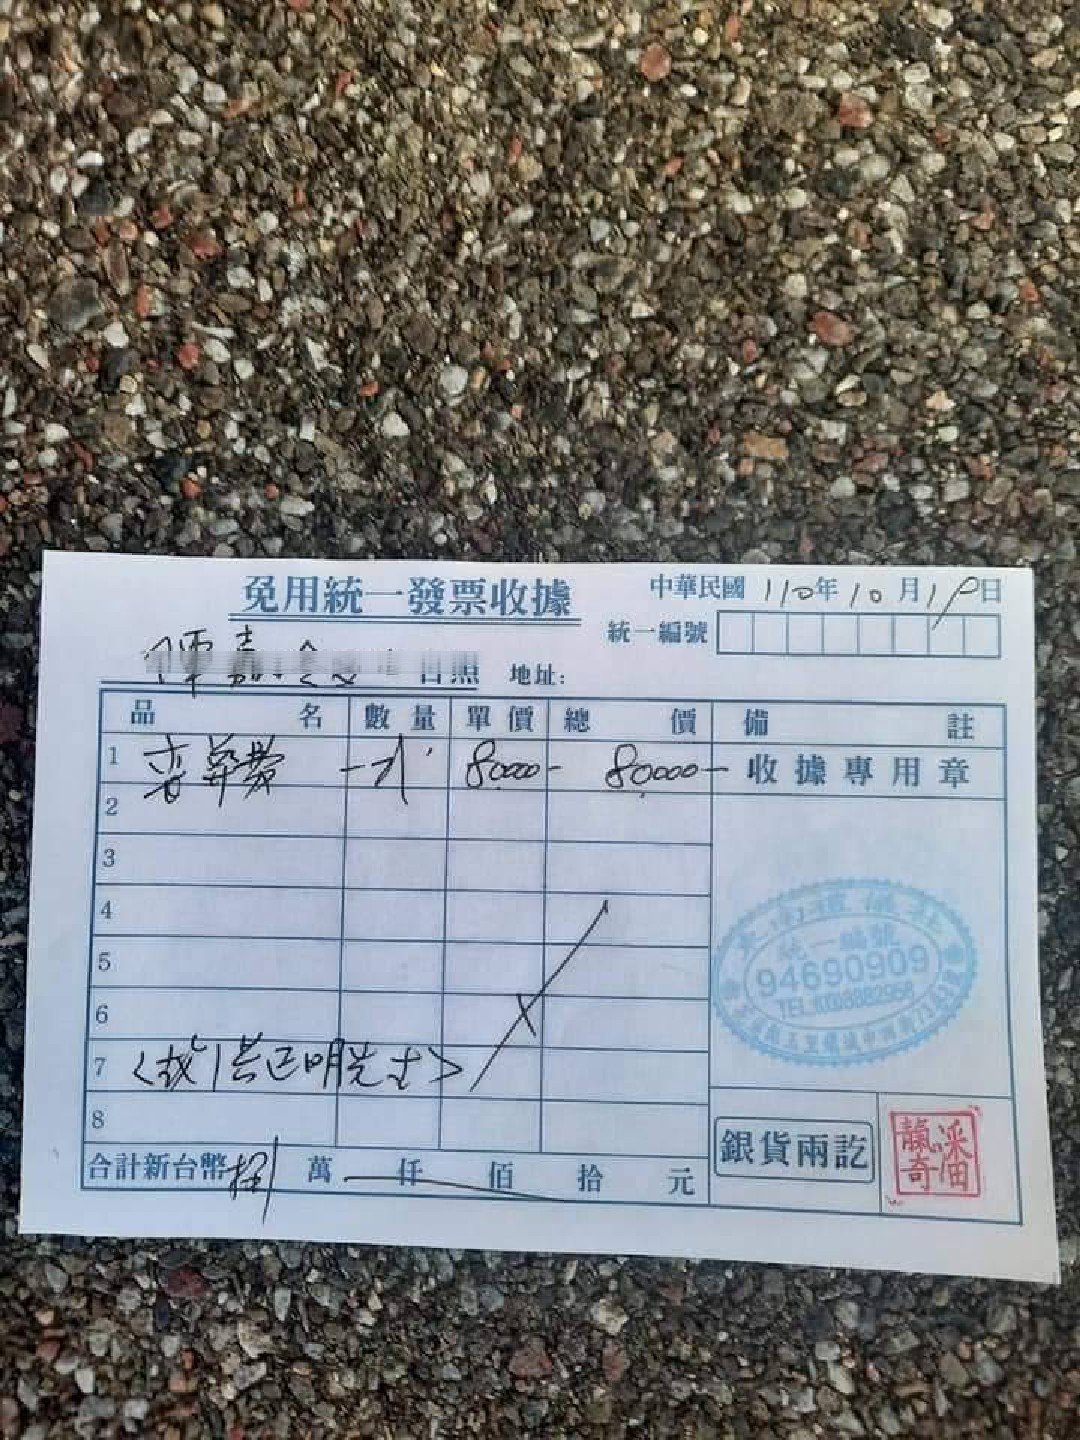 免用統一發票收據
中華民國 110年 10月 19日
統一編號
台照 地址:
品名 數量 單價 總價 備註
1 喪葬費 一式 80,000- 80,000- 收據專用章
2
3
4
5
6
7 <故 洪正明先生>
8
大南禮儀社
統一編號
94690909
銀貨兩訖
合計新台幣 捌 萬 仟 佰 拾 元